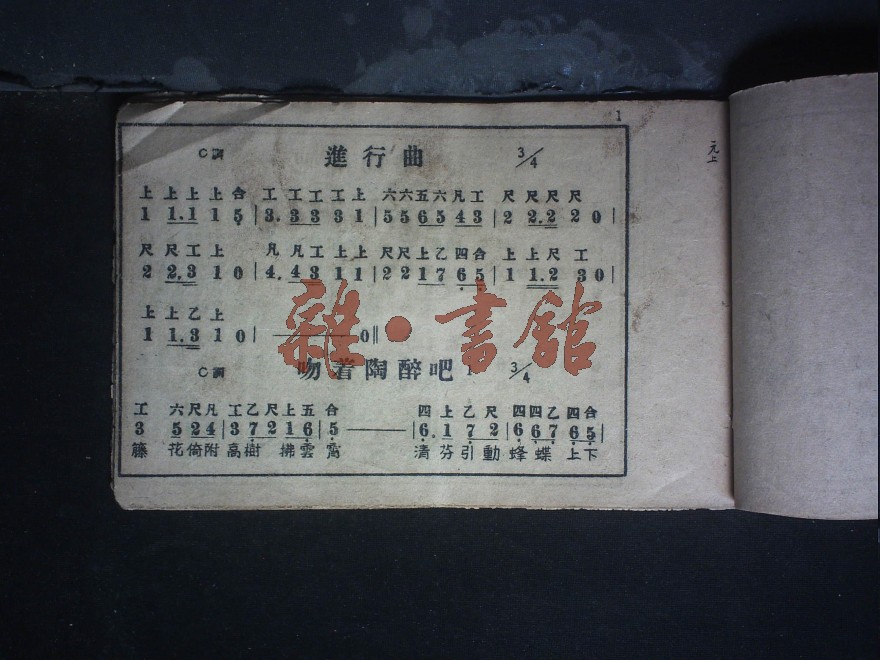 1
C調 進行曲 3/4
上 上 上 上 合 工 工 工 工 上 六 六 五 六 凡 工 尺 尺 尺 尺
1 1.1 1 5 | 3. 3 3 3 1 | 5 5 6 5 4 3 | 2 2.2 2 0 |
尺 尺 工 上 凡 凡 工 上 上 尺 尺 上 乙 四 合 上 上 尺 工
2 2.3 1 0 | 4. 4 3 1 1 | 2 2 1 7 6 5 | 1 1.2 3 0 |
上 上 乙 上
1 1.3 1 0 | — 0 ||
C調 吻着陶醉吧 3/4
工 六 尺 凡 工 乙 尺 上 五 合 四 上 乙 尺 四 四 乙 四 合
3 5 2 4 | 3 7 2 1 6 | 5 — | 6. 1 7 2 | 6 6 7 6 5 |
籐 花倚附高樹 拂雲霄 清芬引動蜂蝶 上下
元上
雜·書館